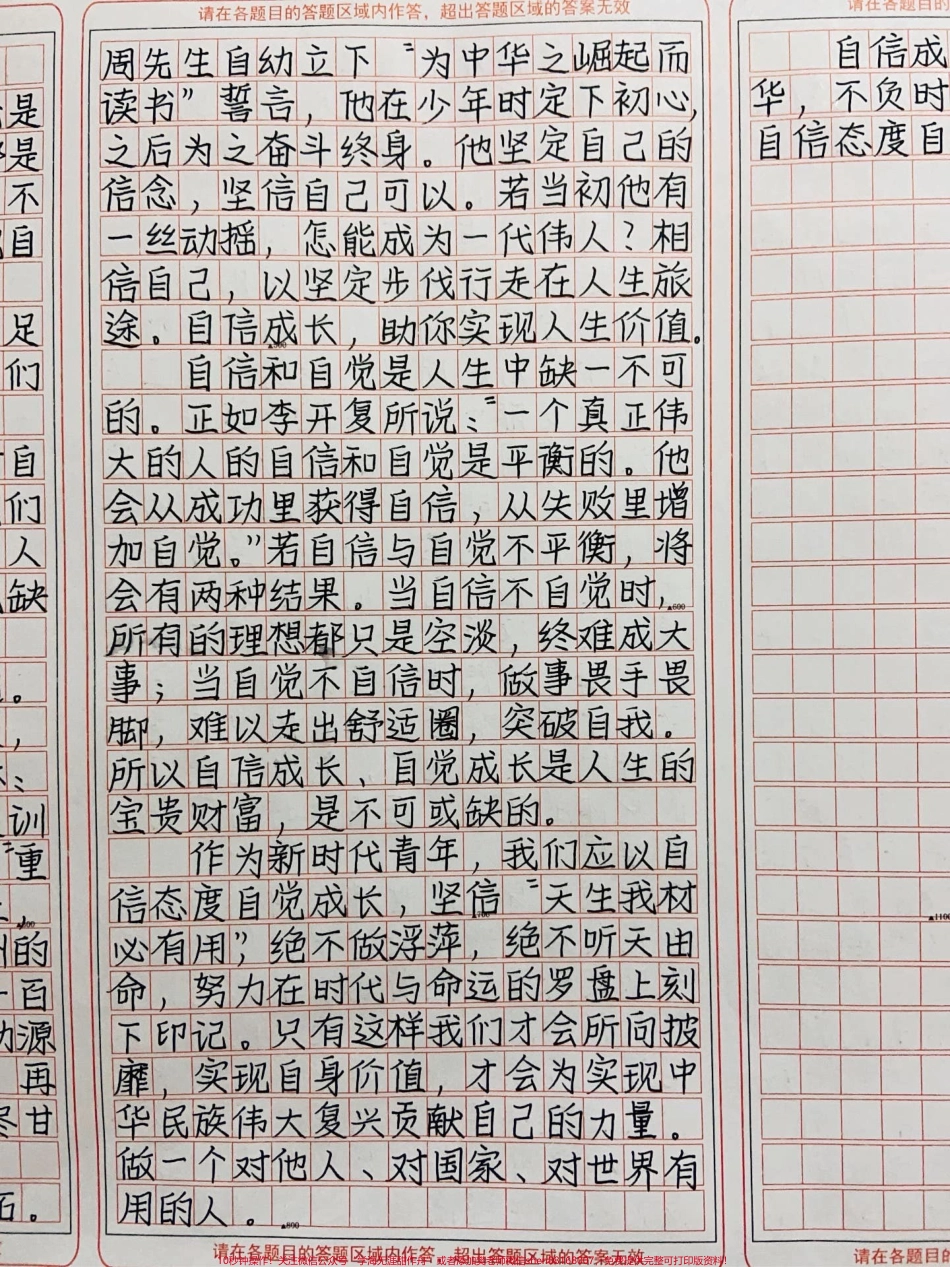 请在各题目的答题区域内作答，超出答题区域的答案无效
周先生自幼立下“为中华之崛起而
读书”誓言，他在少年时定下初心，
之后为之奋斗终身。他坚定自己的
信念，坚信自己可以。若当初他有
一丝动摇，怎能成为一代伟人？相
信自己，以坚定步伐行走在人生旅
途。自信成长，助你实现人生价值。
自信和自觉是人生中缺一不可
的。正如李开复所说：“一个真正伟
大的人的自信和自觉是平衡的。他
会从成功里获得自信，从失败里增
加自觉。”若自信与自觉不平衡，将
会有两种结果。当自信不自觉时，
▲600
所有的理想都只是空淡，终难成大
事；当自觉不自信时，做事畏手畏
脚，难以走出舒适圈，突破自我。
所以自信成长、自觉成长是人生的
宝贵财富，是不可或缺的。
作为新时代青年，我们应以自
信态度自觉成长，坚信“天生我材
▲700
必有用”，绝不做浮萍，绝不听天由
命，努力在时代与命运的罗盘上刻
下印记。只有这样我们才会所向披
靡，实现自身价值，才会为实现中
华民族伟大复兴贡献自己的力量。
做一个对他人、对国家、对世界有
用的人。
▲800
请在各题目的答题区域内作答，超出答题区域的答案无效
是
是
不
自
足
们
自
们
人
缺
。
，
训
“重
的
百
源
再
甘
石。
请在各题目的
自信成
华，不负时
自信态度自
▲1100
请在各题目的